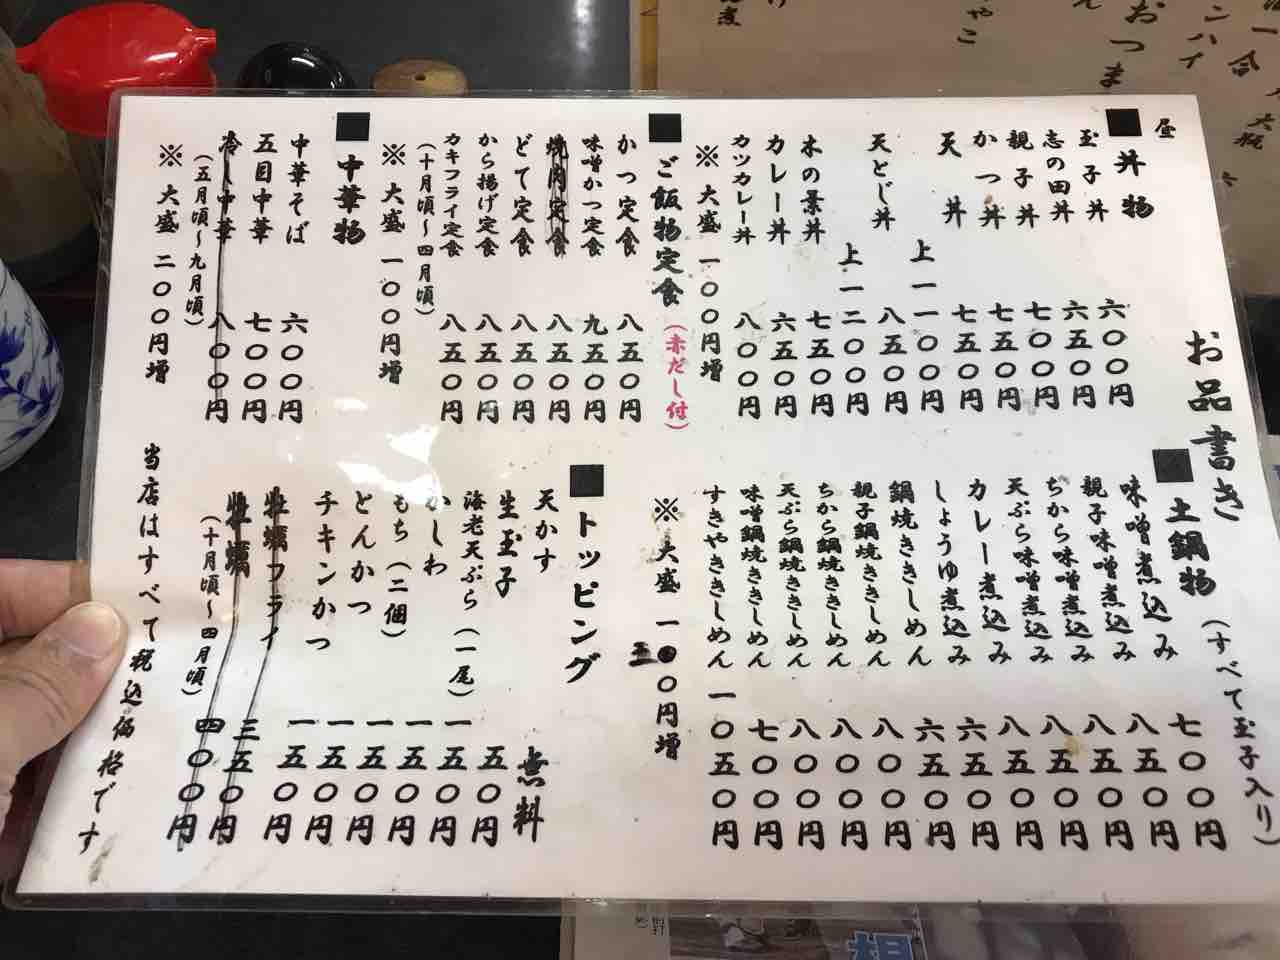 お品書き
昼
■ 丼物
玉子丼 六〇〇円
志の田丼 六五〇円
親子丼 七〇〇円
かつ丼 七五〇円
天丼 七五〇円
上一一〇〇円
天とじ丼 八五〇円
上一二〇〇円
木の葉丼 七五〇円
カレー丼 六五〇円
カツカレー丼 八〇〇円
※ 大盛 一〇〇円増
■ ご飯物定食 (赤だし付)
かつ定食 八五〇円
味噌かつ定食 九五〇円
焼肉定食 八五〇円
どて定食 八五〇円
から揚げ定食 八五〇円
カキフライ定食 八五〇円
(十月頃〜四月頃)
※ 大盛 一〇〇円増
■ 中華物
中華そば 六〇〇円
五目中華 七〇〇円
冷し中華 八〇〇円
(五月頃〜九月頃)
※ 大盛 二〇〇円増
■ 土鍋物 (すべて玉子入り)
味噌煮込み 七〇〇円
親子味噌煮込み 八五〇円
ちから味噌煮込み 八五〇円
天ぷら味噌煮込み 八五〇円
カレー煮込み 八五〇円
しょうゆ煮込み 六五〇円
鍋焼ききしめん 六五〇円
親子鍋焼ききしめん 八〇〇円
ちから鍋焼ききしめん 八〇〇円
天ぷら鍋焼ききしめん 八〇〇円
味噌鍋焼ききしめん 七〇〇円
すきやききしめん 一〇五〇円
※ 大盛 一三〇円増
■ トッピング
天かす 無料
生玉子 五〇円
海老天ぷら(一尾) 一五〇円
かしわ 一五〇円
もち(二個) 一五〇円
とんかつ 一五〇円
チキンかつ 一五〇円
牡蠣フライ 三五〇円
牡蠣 四〇〇円
(十月頃〜四月頃)
当店はすべて税込価格です